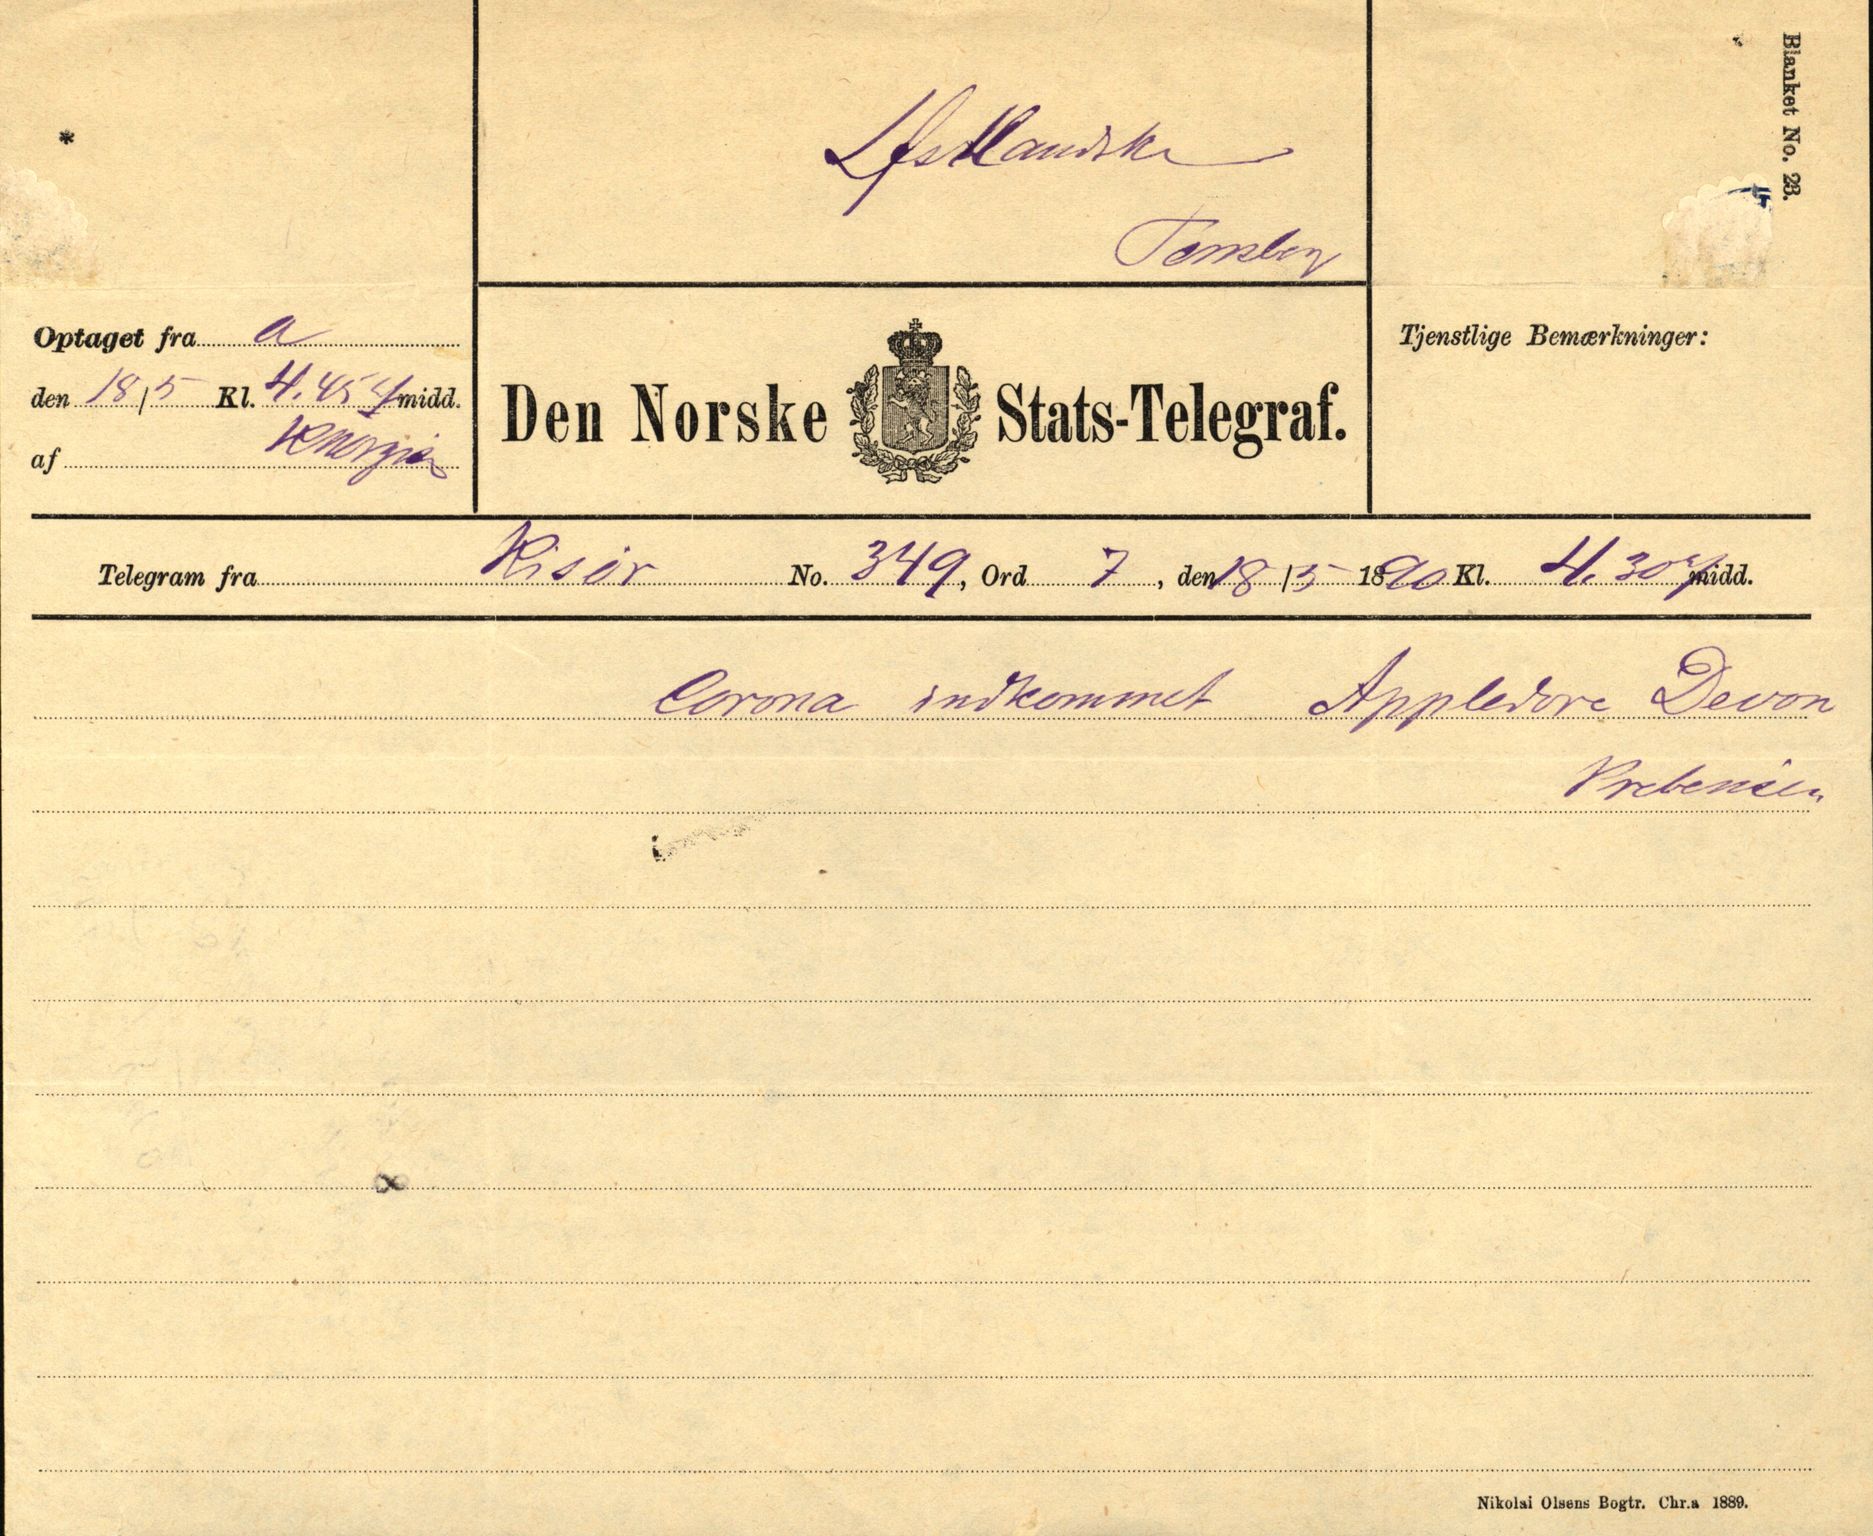 Blanket No. 23.
Tønsberg
Optaget fra a
den 18/5 Kl. 4.45 midd.
af
Den Norske Stats-Telegraf.
Tjenstlige Bemærkninger:
Telegram fra Risør No. 349, Ord 7, den 18/5 1890 Kl. 4.30 midd.
Corona indkommet Appledore Devon
Prebensen
Nikolai Olsens Bogtr. Chr.a 1889.